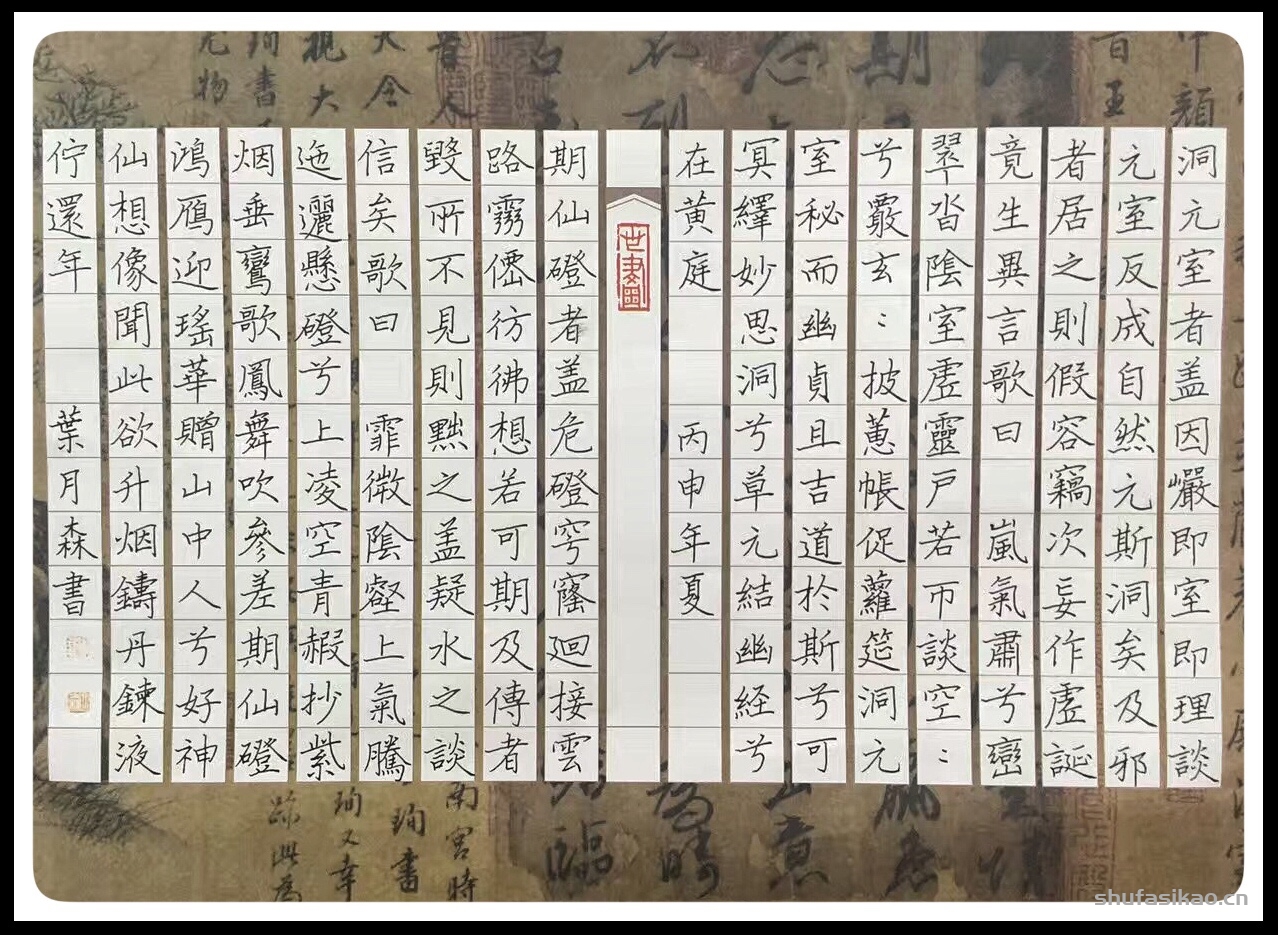 洞元室者盖因巖即室即理談
元室反成自然元斯洞矣及邪
者居之則假容竊次妄作虛誕
竟生異言歌曰 嵐氣肅兮巒
翠沓陰室虛靈戶若帀談空:
兮覈玄:披蕙帳促蘿筵洞元
室秘而幽貞且吉道於斯兮可
冥繹妙思洞兮草元結幽経兮
在黃庭 丙申年夏
期仙磴者盖危磴穹窿迴接雲
路霧僊彷彿想若可期及傳者
毀所不見則黜之盖疑水之談
信矣歌曰 霏微陰壑上氣騰
迤邐懸磴兮上凌空青赮抄紫
烟垂鸞歌鳳舞吹參差期仙磴
鴻鴈迎瑤華贈山中人兮好神
仙想像聞此欲升烟鑄丹鍊液
佇還年 葉月森書
shufasikao.cn